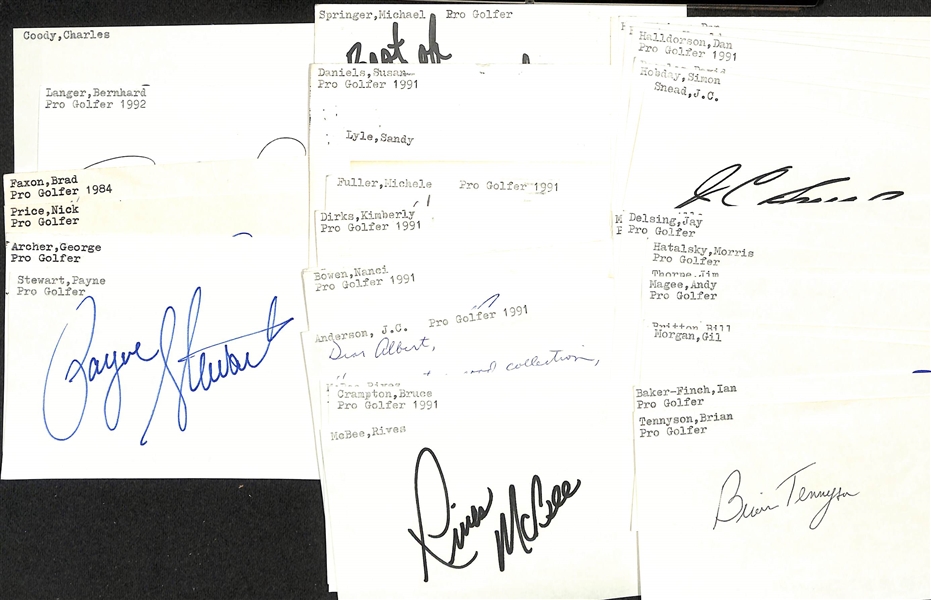 Coody,Charles
Langer,Bernhard
Pro Golfer 1992
Faxon,Brad
Pro Golfer 1984
Price,Nick
Pro Golfer
Archer,George
Pro Golfer
Stewart,Payne
Pro Golfer
Payne Stewart
Springer,Michael Pro Golfer
Best of
Daniels,Susan
Pro Golfer 1991
Lyle,Sandy
Fuller,Michele Pro Golfer 1991
Dirks,Kimberly
Pro Golfer 1991
Bowen,Nanci
Pro Golfer 1991
Anderson, J.C. Pro Golfer 1991
Dear Albert,
and collection,
Crampton,Bruce
Pro Golfer 1991
McBee,Rives
Rives McBee
Halldorson,Dan
Pro Golfer 1991
Hobday,Simon
Snead,J.C.
J C Snead
Delsing,Jay
Pro Golfer
Hatalsky,Morris
Pro Golfer
Thorpe,Jim
Magee,Andy
Pro Golfer
Britton,Bill
Morgan,Gil
Baker-Finch,Ian
Pro Golfer
Tennyson,Brian
Pro Golfer
Brian Tennyson